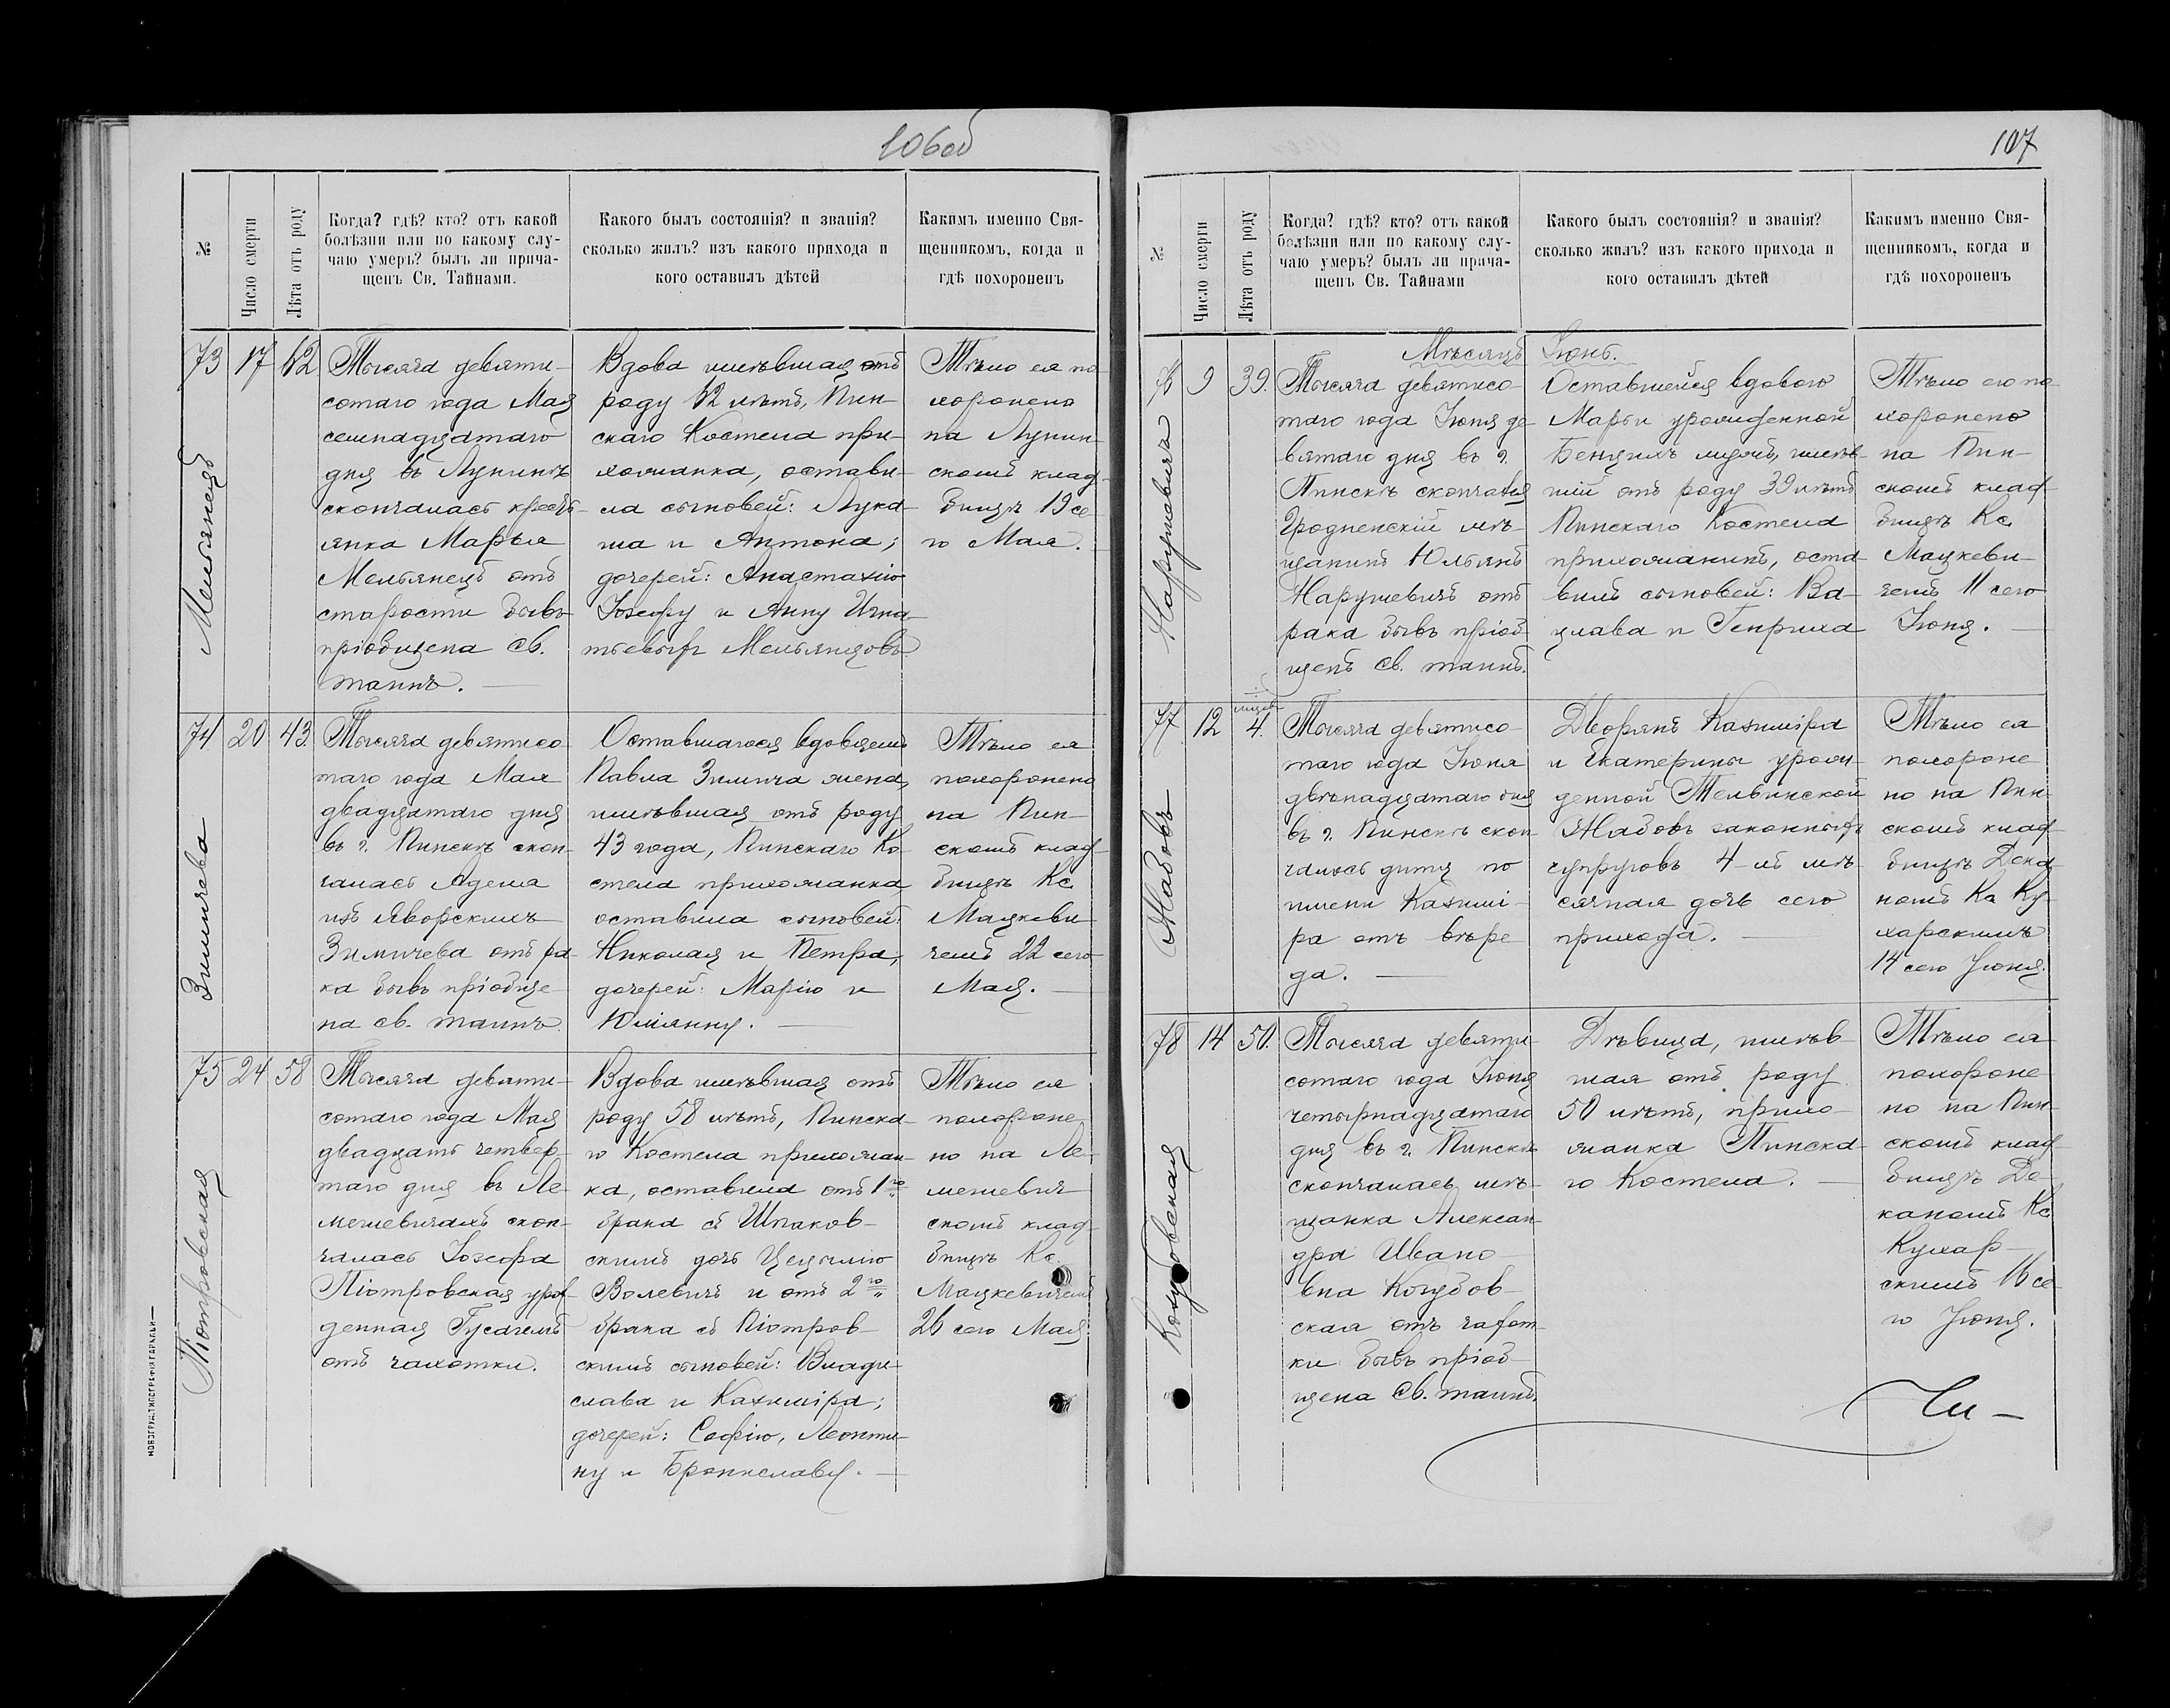 106об
№
Число смерти
Лѣта отъ роду
Когда? гдѣ? кто? отъ какой
болѣзни или по какому слу-
чаю умеръ? былъ ли прича-
щенъ Св. Тайнами.
Какого былъ состоянія? и званія?
сколько жилъ? изъ какого прихода и
кого оставилъ дѣтей
Какимъ именно Свя-
щенникомъ, когда и
гдѣ похороненъ
73
17
62
Мельянецъ
Тысяча девяти-
сотаго года Мая
семнадцатаго
дня въ Лунинѣ
скончалась кресть-
янка Марья
Мельянецъ отъ
старости бывъ
пріобщена Св.
таинъ.
Вдова имѣвшая отъ
роду 62 лѣтъ, Пин-
скаго Костела при-
хожанка, остави-
ла сыновей: Лука-
ша и Антона;
дочерей: Анастазію
Іозефу и Анну Игна-
тьевыхъ Мельянцовъ
Тѣло ея по-
хоронено
на Лунин-
скомъ клад-
бищѣ 19 се-
го Мая.
74
20
43.
Зимичева
Тысяча девятисо-
таго года Мая
двадцатаго дня
въ г. Пинскѣ скон-
чалась Адель
изъ Яворскихъ
Зимичева отъ ра-
ка бывъ пріобще-
на св. таинъ
Оставшагося вдовцемъ
Павла Зимича жена,
имѣвшая отъ роду
43 года, Пинскаго Ко-
стела прихожанка,
оставила сыновей:
Николая и Петра,
дочерей: Марію и
Юліянну.
Тѣло ея
похоронено
на Пин-
скомъ клад-
бищѣ Кс.
Мацкеви-
чемъ 22 сего
Мая.
75
24
58
Піотровская
Тысяча девяти-
сотаго года Мая
двадцать четвер-
таго дня въ Ле-
мешевичахъ скон-
чалась Іозефа
Піотровская урож-
денная Гусачемъ
отъ чахотки.
Вдова имѣвшая отъ
роду 58 лѣтъ, Пинска-
го Костела прихожан-
ка, оставила отъ 1го
брака съ Шпаков-
скимъ дочь Цецылію
Волевичъ и отъ 2го
брака съ Піотров-
скимъ сыновей: Влади-
слава и Казиміра;
дочерей: Софію, Леонти-
ну и Брониславу.
Тѣло ея
похороне-
но на Ле-
мешевич-
скомъ клад-
бищѣ Кс.
Мацкевичемъ
26 сего Мая.
НОВОГРУД. ТИПОГРАФІЯ
107
№
Число смерти
Лѣта отъ роду
Когда? гдѣ? кто? отъ какой
болѣзни или по какому слу-
чаю умеръ? былъ ли прича-
щенъ Св. Тайнами
Какого былъ состоянія? и званія?
сколько жилъ? изъ какого прихода и
кого оставилъ дѣтей
Какимъ именно Свя-
щенникомъ, когда и
гдѣ похороненъ
Мѣсяцъ Іюнь.
9
39.
Нарушевичъ
Тысяча девятисо-
таго года Іюня де-
вятаго дня въ г.
Пинскѣ скончался
Гродненскій мѣ-
щанинъ Юльянъ
Нарушевичъ отъ
рака бывъ пріоб-
щенъ св. таинъ.
Оставшейся вдовою
Марьи урожденной
мужъ, имѣв-
шій отъ роду 39 лѣтъ
Пинскаго Костела
прихожанинъ, оста-
вилъ сыновей: Ва-
цлава и Генриха
Тѣло его по-
хоронено
на Пин-
скомъ клад-
бищѣ Кс.
Мацкеви-
чемъ 11 сего
Іюня.
77
12
4.
Жабовъ
Тысяча девятисо-
таго года Іюня
двѣнадцатаго дня
въ г. Пинскѣ скон-
чалось дитя по
имени Казими-
ра отъ
Дворянъ Казиміра
и Екатерины урож-
денной Тельвинской
Жабовъ законныхъ
супруговъ 4-хъ мѣ-
сячная дочь сего
прихода.
Тѣло ея
похороне-
но на Пин-
скомъ клад-
бищѣ Дека-
номъ Кс. Ку-
харскимъ
14 сего Іюня.
78
14
50.
Тысяча девяти-
сотаго года Іюня
четырнадцатаго
дня въ г. Пинскѣ
скончалась мѣ-
щанка Алексан-
дра Ивано-
вна
ская отъ чахот-
ки бывъ пріоб-
щена Св. таинъ.
Дѣвица, имѣв-
шая отъ роду
50 лѣтъ, прихо-
жанка Пинска-
го Костела.
Тѣло ея
похороне-
но на Пин-
скомъ клад-
бищѣ Де-
каномъ Кс.
Кухар-
скимъ 16 се-
го Іюня.